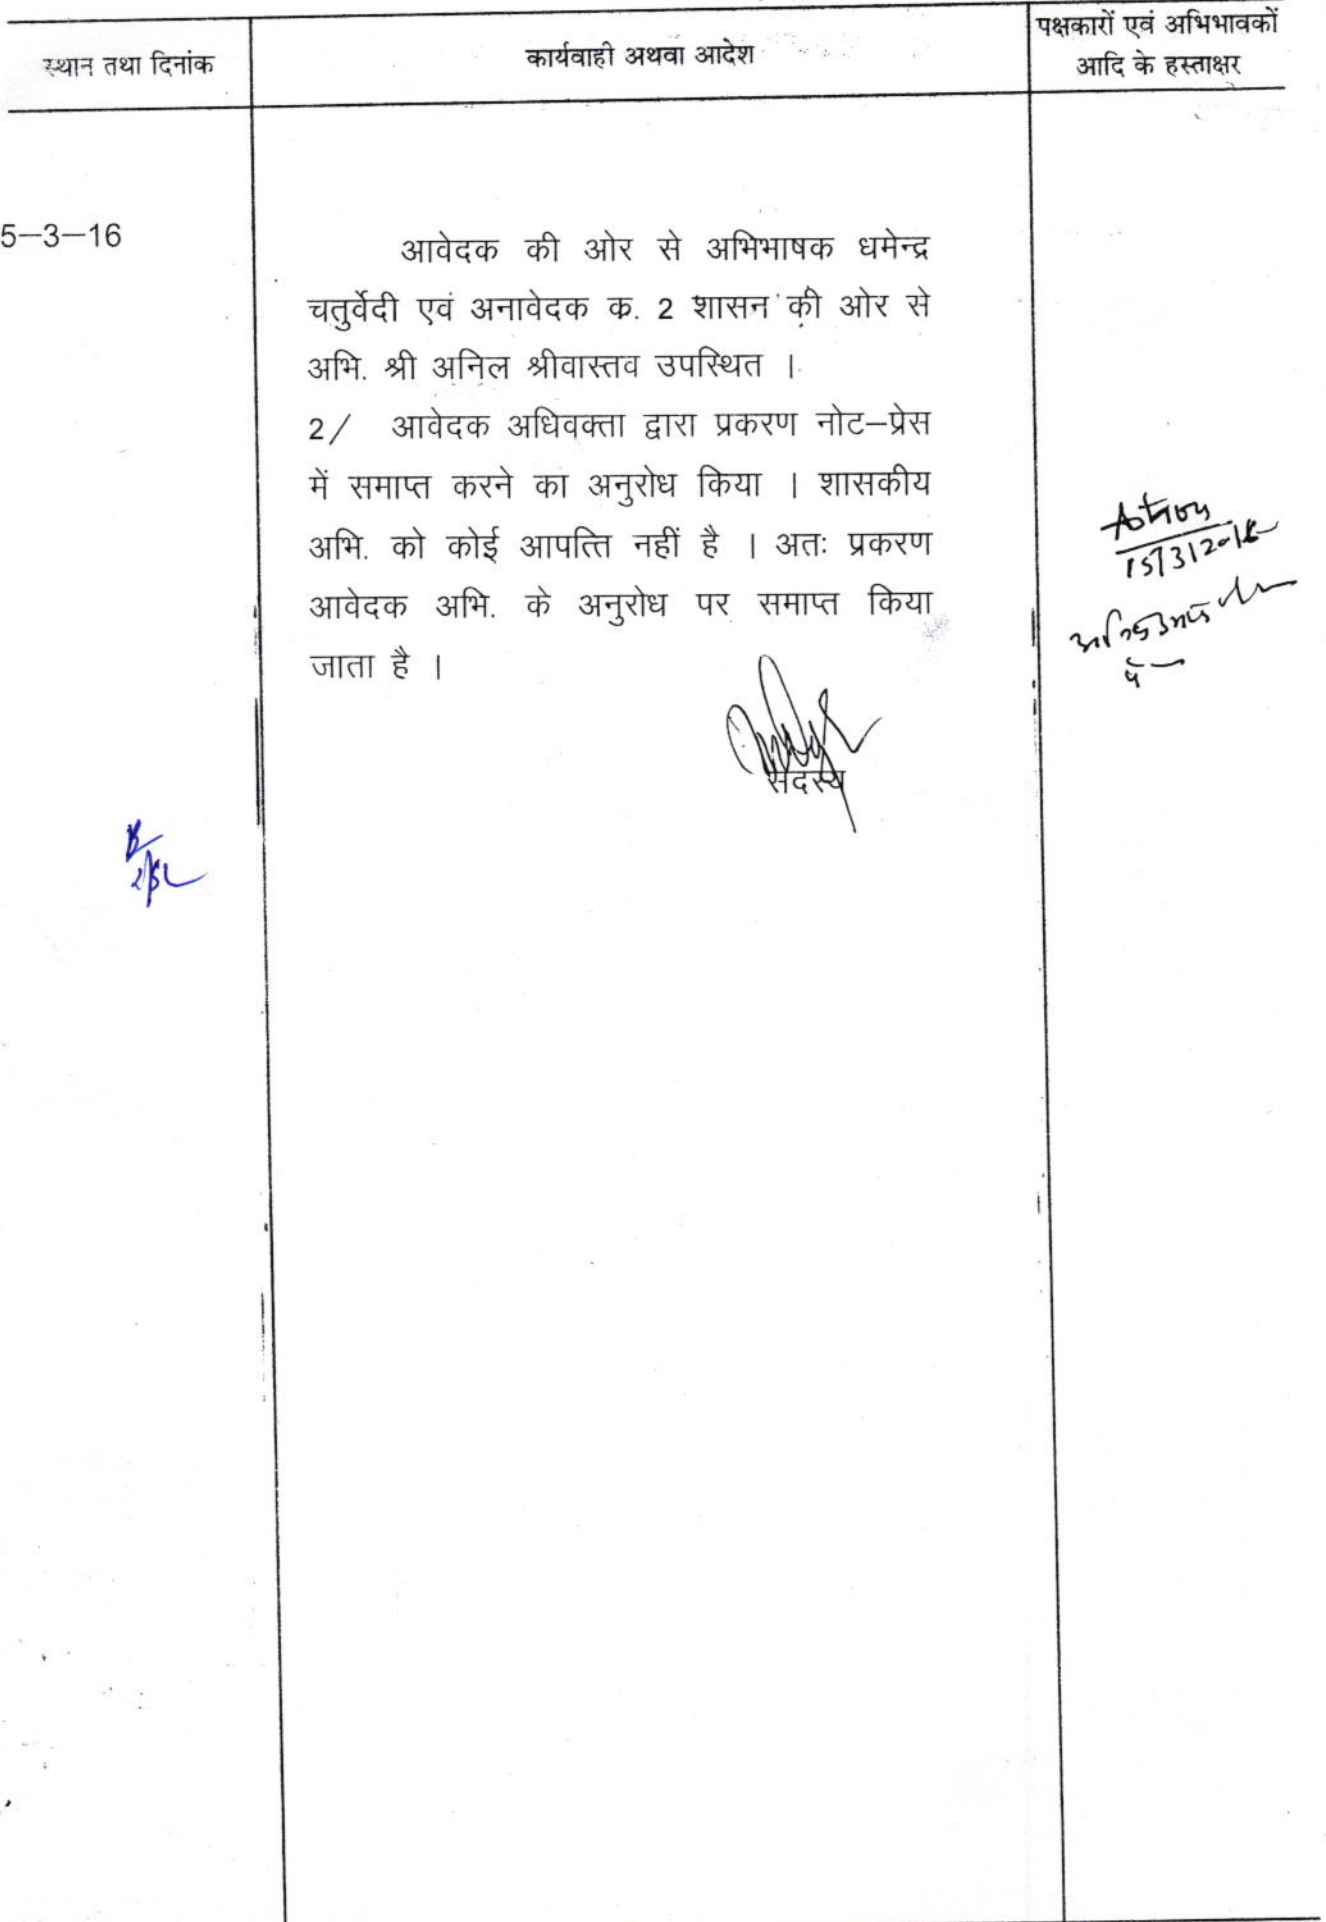 स्थान तथा दिनांक
कार्यवाही अथवा आदेश
पक्षकारों एवं अभिभावकों
आदि के हस्ताक्षर
5–3–16
आवेदक की ओर से अभिभाषक धमेन्द्र
चतुर्वेदी एवं अनावेदक क. 2 शासन की ओर से
अभि. श्री अनिल श्रीवास्तव उपस्थित ।
2/ आवेदक अधिवक्ता द्वारा प्रकरण नोट–प्रेस
में समाप्त करने का अनुरोध किया । शासकीय
अभि. को कोई आपत्ति नहीं है । अतः प्रकरण
आवेदक अभि. के अनुरोध पर समाप्त किया
जाता है ।
सदस्य
15/3/2016